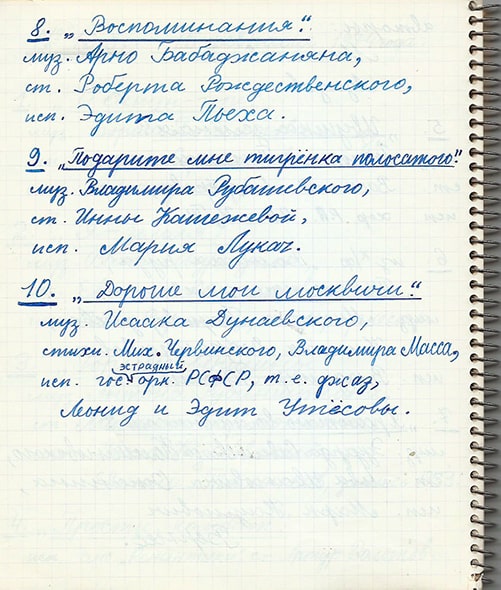 8. „Воспоминания."
муз. Арно Бабаджаняна,
ст. Роберта Рождественского,
исп. Эдита Пьеха.
9. „Подарите мне тигрёнка полосатого."
муз. Владимира Рубашевского,
ст. Инны Кашежевой,
исп. Мария Лукач.
10. „Дорогие мои москвичи."
муз. Исаака Дунаевского,
стихи. Мих. Червинского, Владимира Масса,
эстрадный
исп. гос орк. РСФСР, т.е. джаз,
Леонид и Эдит Утёсовы.